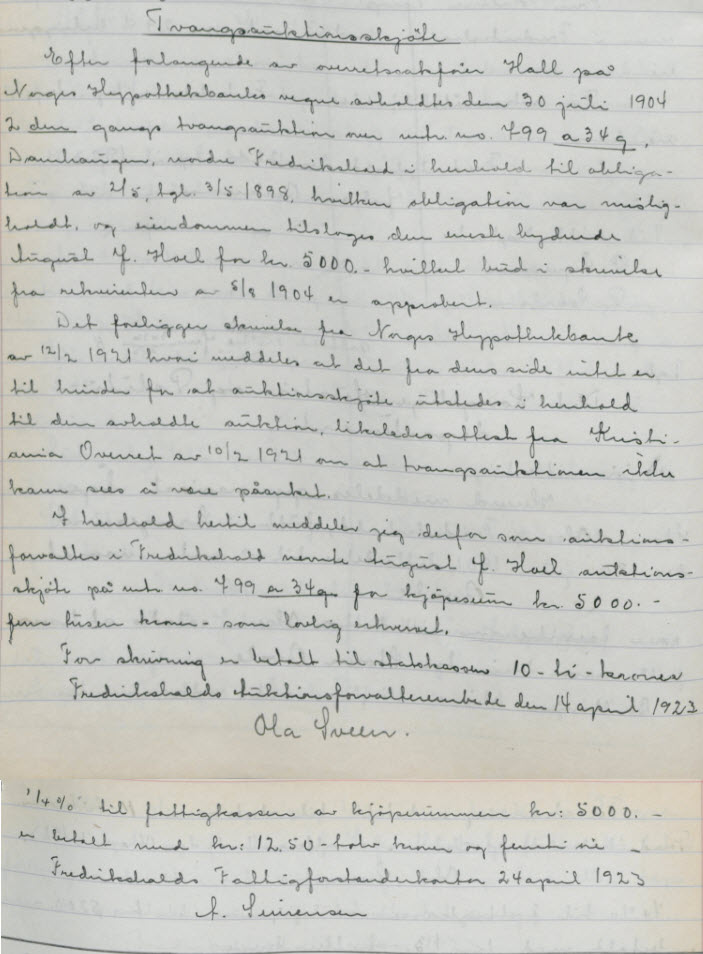 Tvangsauktionsskjöte
Efter forlangende av overretssakförer Hall på
Norges Hypothekbanks vegne avholdtes den 30 juli 1904
2 den gangs tvangsauktion over mtr. no. 799 a 34 q,
Damhaugen, nordre Fredrikshald i henhold til obliga-
tion av 2/5, tgl. 3/5 1898, hvilken obligation var mislig-
holdt, og eiendommen tilsloges den eneste bydende
August J. Hoel for kr. 5000.- hvilket bud i skrivelse
fra rekvirenten av 5/8 1904 er approbert.
Det foreligger skrivelse fra Norges Hypothekbank
av 12/2 1921 hvori meddeles at det fra dens side intet er
til hinder for at auktionsskjöte utstedes i henhold
til den avholdte auktion, likeledes attest fra Kristi-
ania Overret av 10/2 1921 om at tvangsauktionen ikke
kann sees å være påanket.
I henhold hertil meddeler jeg derfor som auktions-
forvalter i Fredrikshald nevnte August J. Hoel auktions-
skjöte på mtr. no. 799 a 34 q for kjöpesum kr. 5000.-
fem tusen kroner - som lovlig erhvervet.
For skrivning er betalt til statskassen 10 - ti - kroner
Fredrikshalds Auktionsforvalterembede den 14 april 1923
Ola Sveen.
1/4 % til fattigkassen av kjöpesummen kr: 5000.-
er betalt med kr: 12.50 - tolv kroner og femti öre -
Fredrikshalds Fattigforstanderkontor 24 april 1923